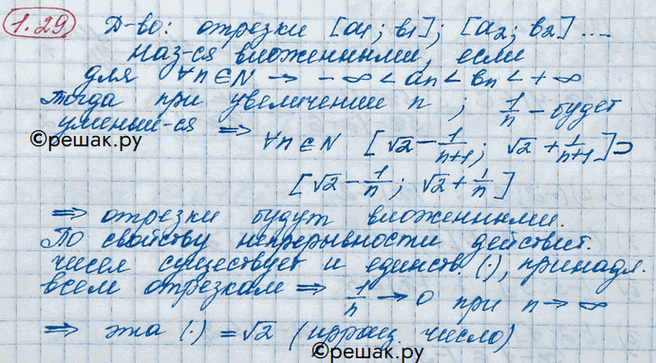 1.29 Д-во: отрезки [a1; в1]; [a2; в2] ...
наз-ся вложенными, если
для ∀n∈N → -∞ < an < вn < +∞
тогда при увеличении n; 1/n - будет
уменьш-ся ⇒ ∀n∈N [√2 - 1/(n+1); √2 + 1/(n+1)] ⊃
©решак.ру
[√2 - 1/n; √2 + 1/n]
⇒ отрезки будут вложенными.
По свойству непрерывности действит.
чисел существует и единств. (·), принадл.
всем отрезкам ⇒ 1/n → 0 при n → ∞
⇒ эта (·) = √2 (иррац. число)
©решак.ру